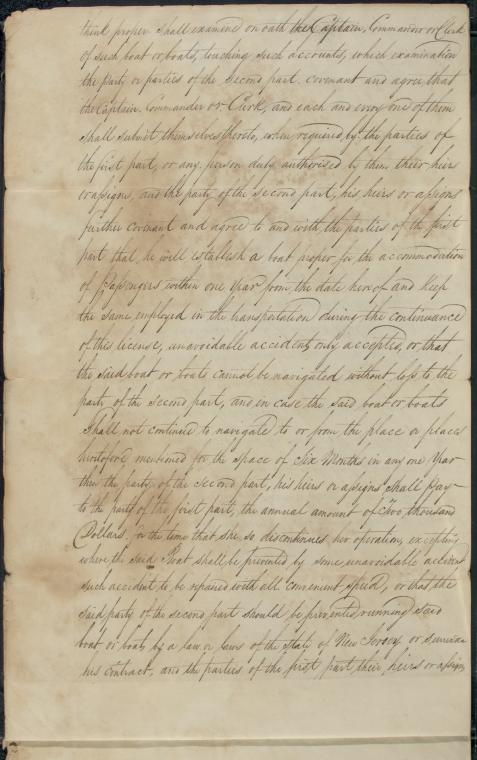 think proper shall examine on oath the Captain, Commander or Clerk
of such boat or boats, touching such accounts, which examination
the party or parties of the second part covenant and agree, that
the Captain Commander or Clerk, and each and every one of them
shall submit themselves thereto, when required by the parties of
the first part, or any person duly authorised by them their heirs
or assigns, and the party of the second part, his heirs or assigns
further covenant and agree to and with, the parties of the first
part that, he will establish a boat proper for the accommodation
of Passengers within one year from the date hereof and keep
the same employed in the transportation during the continuance
of this license, unavoidable accidents only accepted, or that
the said boat or boats cannot be navigated without loss to the
party of the second part, and in case the said boat or boats
shall not continue to navigate to or from the place or places
heretofore mentioned for the space of Six Months in any one Year
then the party of the second part, his heirs or assigns shall pay
to the party of the first part, the annual amount of two thousand
Dollars, for the time that she so discontinues her operation, excepting
where the said Boat shall be prevented by some unavoidable accident
such accident to be repaired with all convenient speed, or that the
said party of the second part should be prevented running said
boat or boats by a law or laws of the State of New Jersey or
his contract, and the parties of the first part, their heirs or assigns